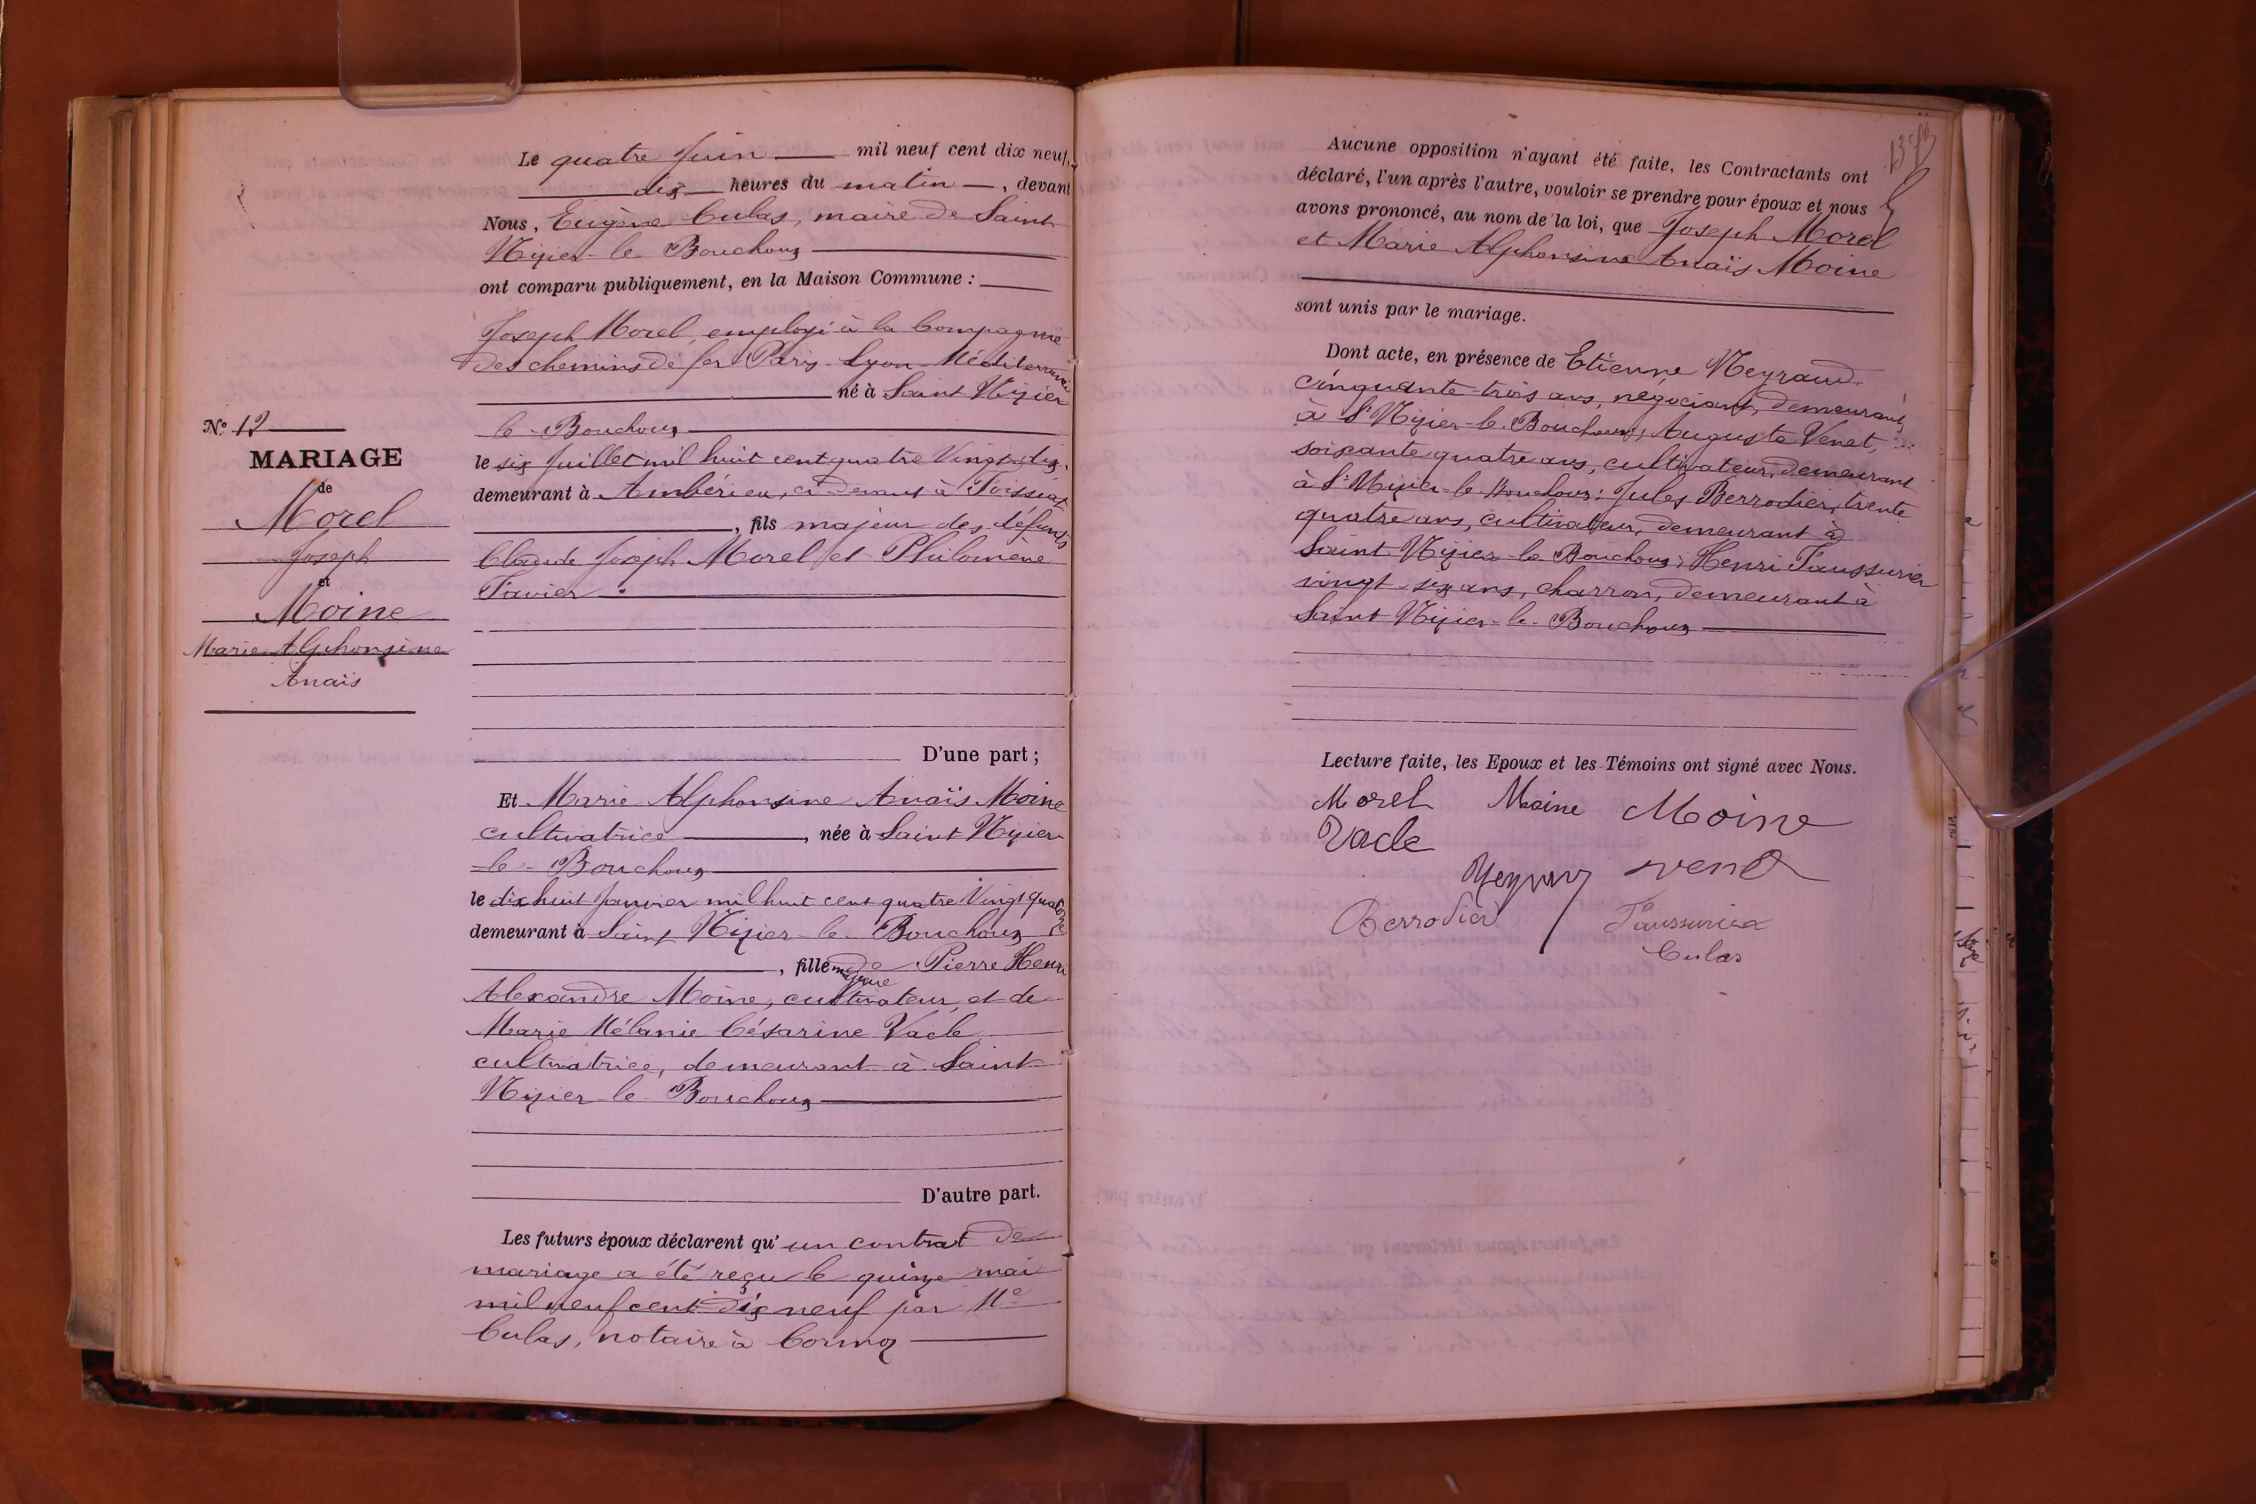 Le quatre Juin mil neuf cent dix neuf,
dix heures du matin, devant
Nous, Eugène Culas, maire de Saint
Nizier-le Bouchoux
ont comparu publiquement, en la Maison Commune :
Joseph Morel, employé à la Compagnie
des chemins de fer Paris-Lyon-Méditerranée
né à Saint Nizier
le Bouchoux
le six Juillet mil huit cent quatre Vingt dix.
demeurant à Ambérieu, ci devant à Foissiat
, fils majeur des défunts
Claude Joseph Morel et Philomène
Favier
D'une part ;
Et Marie Alphonsine Anaïs Moine
cultivatrice, née à Saint Nizier
le-Bouchoux
le dix huit Janvier mil huit cent quatre Vingt quatorze
demeurant à Saint Nizier-le-Bouchoux
, fille majeure de Pierre Henri
Alexandre Moine, cultivateur, et de
Marie Mélanie Césarine Vacle
cultivatrice, demeurant à Saint
Nizier-le-Bouchoux
D'autre part.
Les futurs époux déclarent qu'un contrat de
mariage a été reçu le quinze mai
mil neuf cent dix neuf par Me
Culas, notaire à Cormoz
No 12
MARIAGE
de
Morel
Joseph
et
Moine
Marie Alphonsine
Anaïs
Aucune opposition n'ayant été faite, les Contractants ont
déclaré, l'un après l'autre, vouloir se prendre pour époux et nous
avons prononcé, au nom de la loi, que Joseph Morel
et Marie Alphonsine Anaïs Moine
sont unis par le mariage.
Dont acte, en présence de Etienne Meyraud
cinquante-trois ans, négociant, demeurant
à St Nizier-le-Bouchoux; Auguste Venet,
soixante quatre ans, cultivateur, demeurant
à St Nizier-le-Bouchoux; Jules Berrodier, trente
quatre ans, cultivateur, demeurant à
Saint Nizier-le Bouchoux; Henri Faussurier
vingt-six ans, charron, demeurant à
Saint Nizier-le-Bouchoux
Lecture faite, les Epoux et les Témoins ont signé avec Nous.
Morel Moine Moine
Vacle
Meyraud Venet
Berrodier Faussurier
Culas